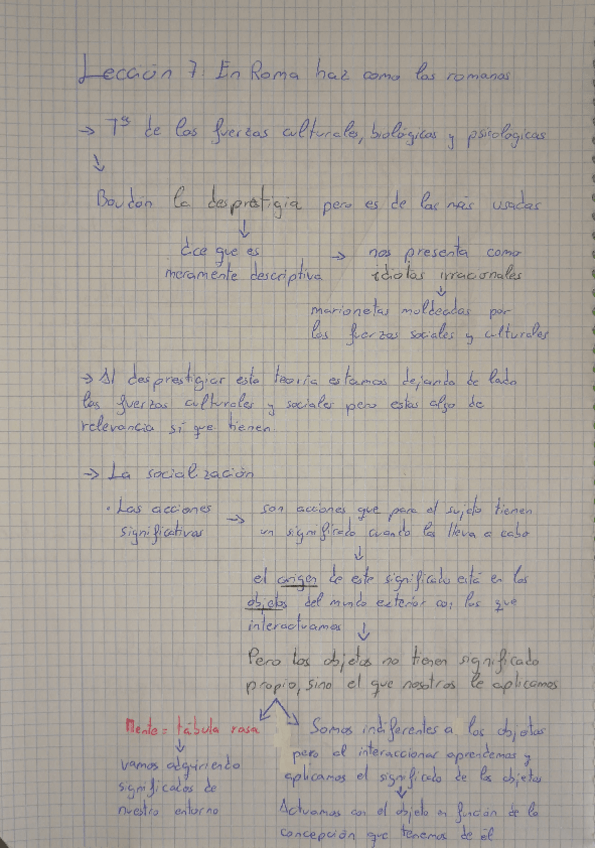 Lección 7. En Roma haz como los romanos
→ Tª de las fuerzas culturales, biológicas y psicológicas
↓
Boudon la desprestigia pero es de las más usadas
↓
dice que es → nos presenta como
meramente descriptiva idiotas irracionales
↓
marionetas moldeadas por
las fuerzas sociales y culturales
→ Al desprestigiar esta teoría estamos dejando de lado
las fuerzas culturales y sociales pero estas algo de
relevancia sí que tienen.
→ La socialización
· Las acciones → son acciones que para el sujeto tienen
significativas un significado cuando las lleva a cabo
↓
el origen de este significado está en los
objetos del mundo exterior con los que
interactuamos ↓
Pero los objetos no tienen significado
propio, sino el que nosotros le aplicamos
Mente = tábula rasa
↓
vamos adquiriendo
significados de
nuestro entorno
Somos indiferentes a los objetos
pero al interaccionar aprendemos y
aplicamos el significado de los objetos
↓
Actuamos con el objeto en función de la
concepción que tenemos de él